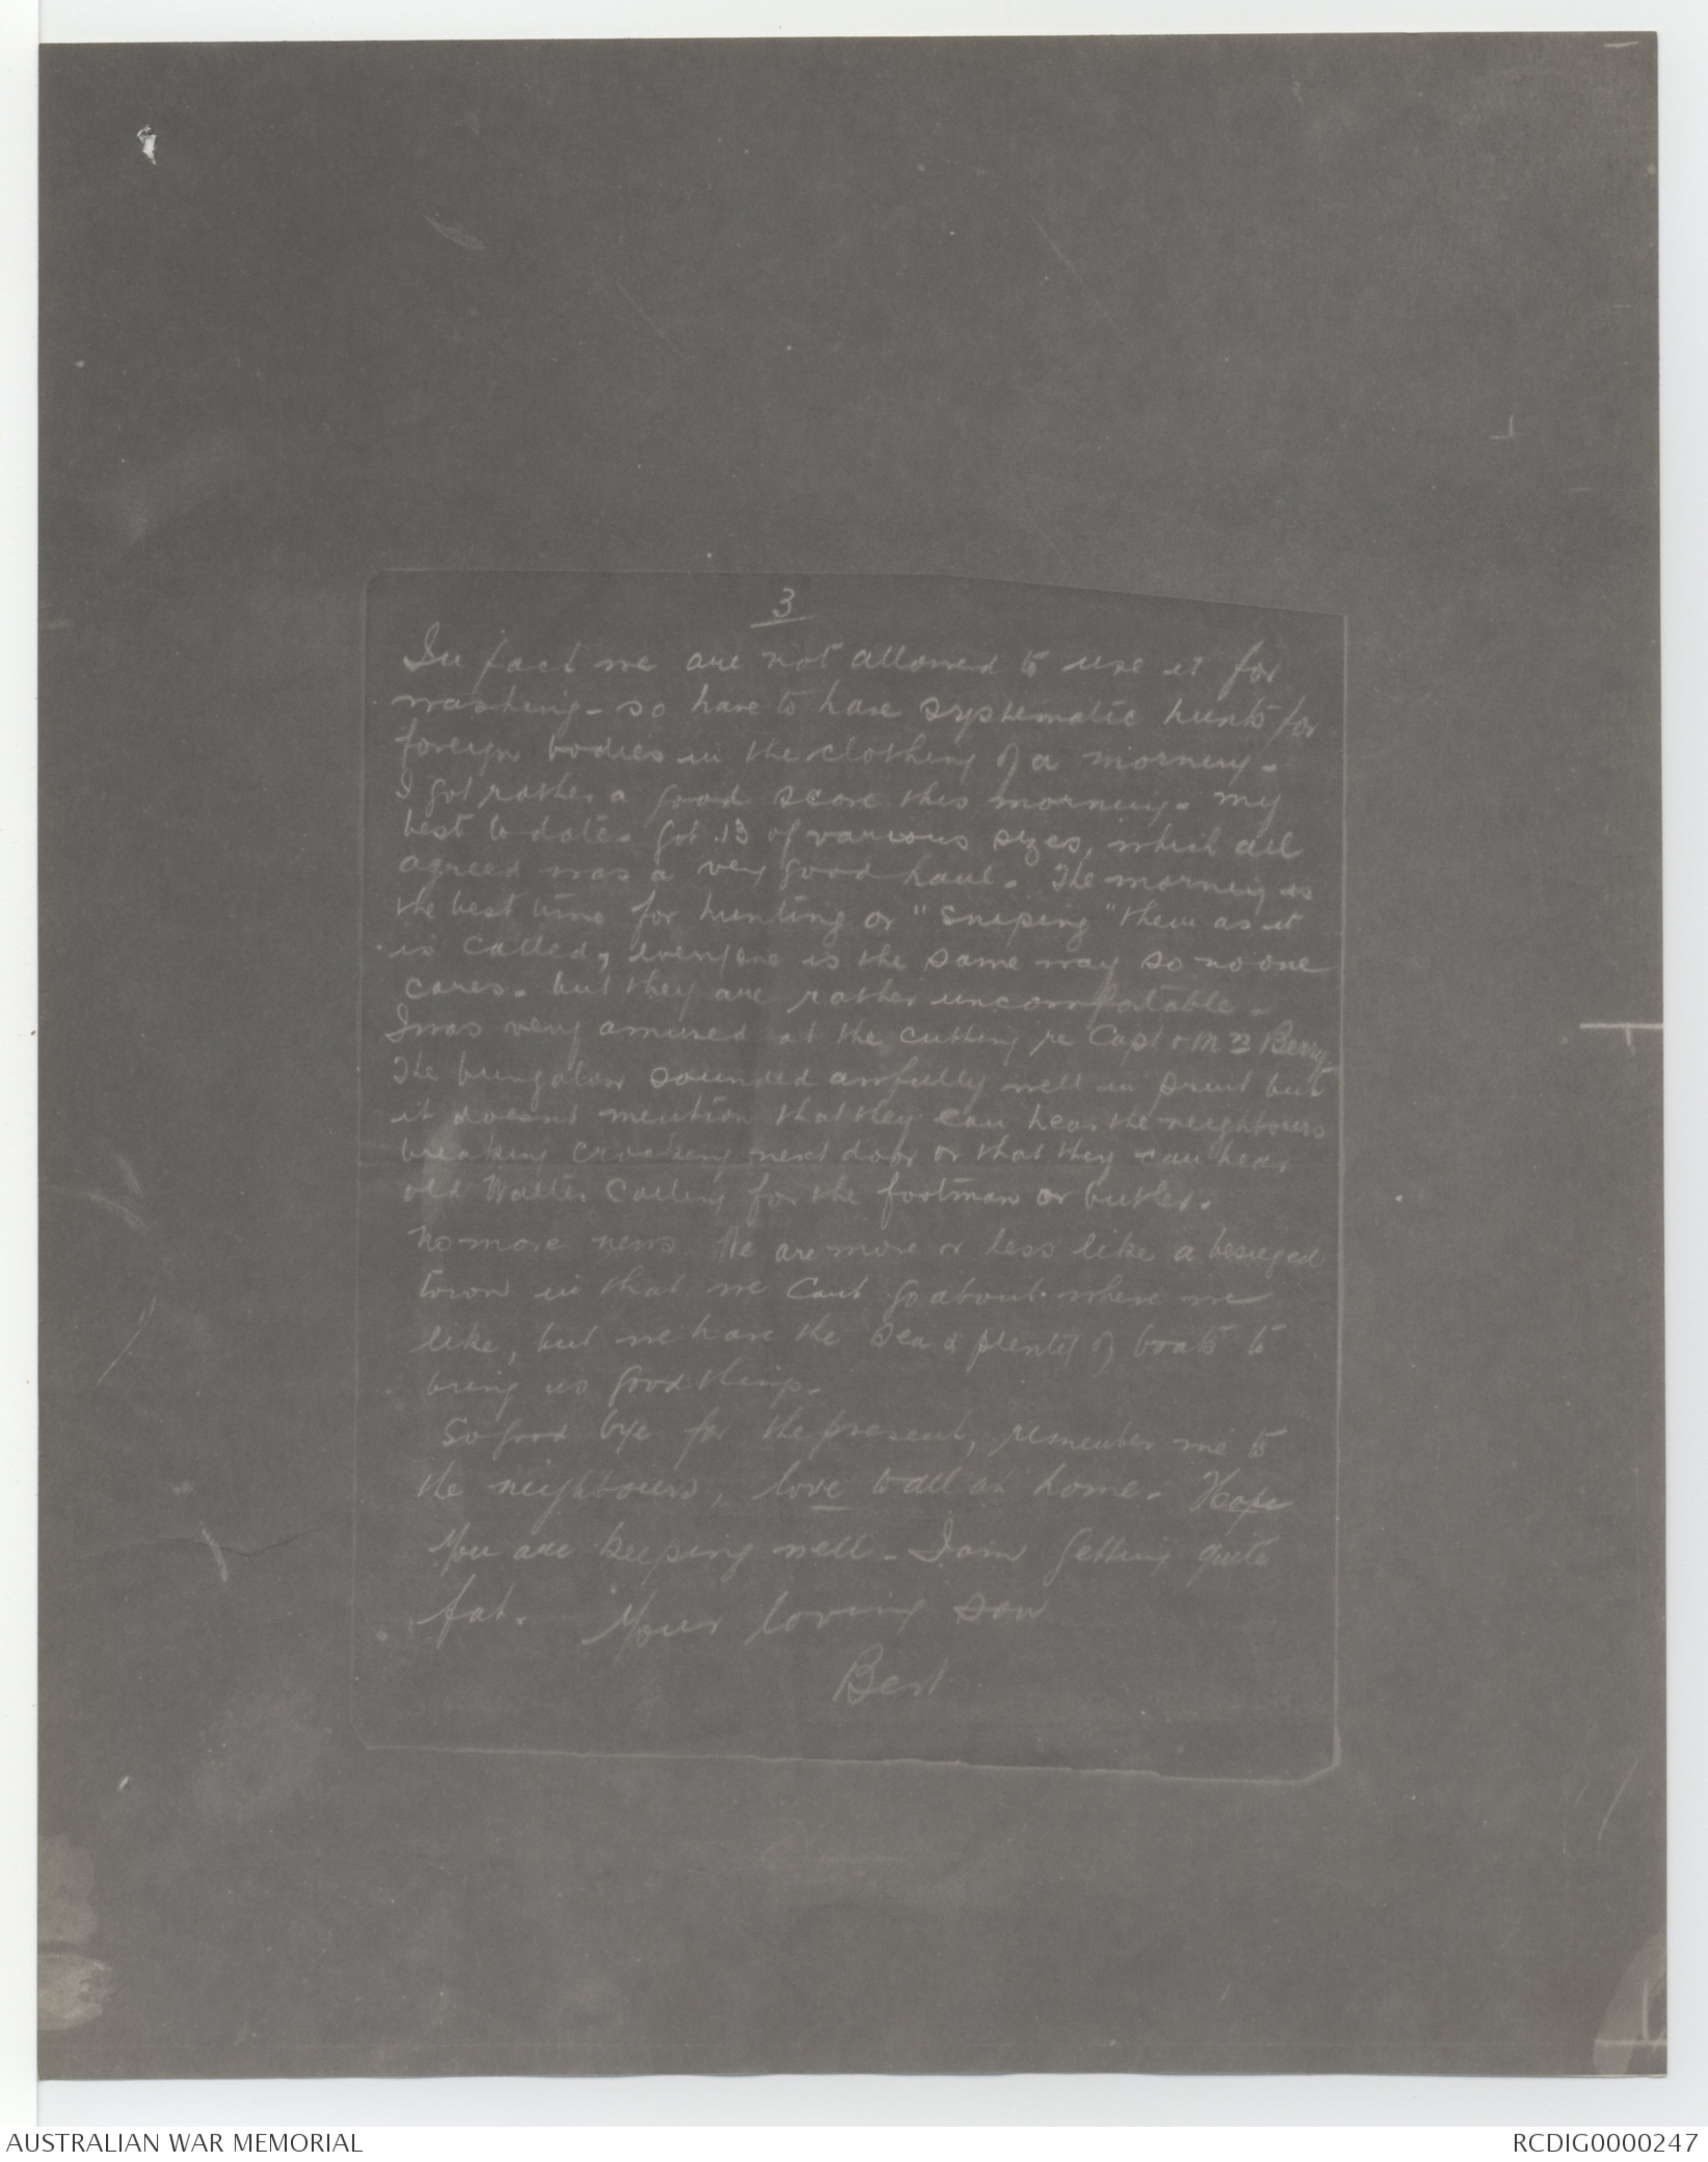 3
In fact we are not allowed to use it for
washing - so have to have systematic hunts for
foreign bodies in the clothing of a morning -
I got rather a good score this morning - my
best to date. Got 13 of various sizes, which all
agreed was a very good haul. The morning is
the best time for hunting or "Sniping" them as it
is called, everyone is the same way so no one
cares. but they are rather uncomfortable -
I was very amused at the cutting re Capt & Mrs Berry.
The bungalow sounded awfully well in print but
it doesnt mention that they can hear the neighbours
breaking crockery next door or that they can hear
old Walter calling for the footman or butler.
No more news. We are more or less like a besieged
town in that we cant go about where we
like, but we have the sea & plenty of boats to
bring us good things.
So good bye for the present, remember me to
the neighbours, love to all at home. Hope
you are keeping well - I am getting quite
fat. Your loving son
Bert
AUSTRALIAN WAR MEMORIAL
RCDIG0000247